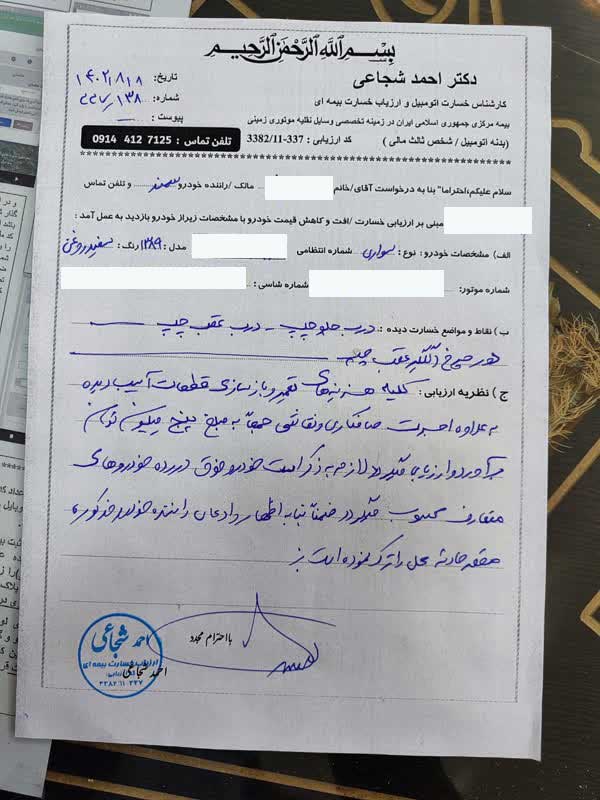 بسم الله الرحمن الرحیم
دکتر احمد شجاعی
تاریخ: ۱۴۰۲/۸/۱۸
کارشناس خسارت اتومبیل و ارزیاب خسارت بیمه ای
شماره: ۱۳۸
بیمه مرکزی جمهوری اسلامی ایران در زمینه تخصصی وسایل نقلیه موتوری زمینی
پیوست:
(بدنه اتومبیل / شخص ثالث مالی) کد ارزیابی: 3382/11-337 تلفن تماس: 0914 412 7125
سلام علیکم،احتراما" بنا به درخواست آقای/خانم مالک /راننده خودرو سمند و تلفن تماس
مبنی بر ارزیابی خسارت /افت و کاهش قیمت خودرو با مشخصات زیراز خودرو بازدید به عمل آمد:
الف) مشخصات خودرو: نوع: سواری شماره انتظامی مدل: ۱۳۸۹ رنگ: سفید روغنی
شماره موتور: شماره شاسی:
ب) نقاط و مواضع خسارت دیده: درب جلو چپ - درب عقب چپ
دور چرخ (گلگیر عقب چپ)
ج) نظریه ارزیابی: کلیه هزینه های تعمیر و بازسازی قطعات آسیب دیده
به علاوه اجرت صافکاری و نقاشی جمعاً به مبلغ پنج میلیون تومان
برآورد و ارزیابی میگردد لازم به ذکر است خودرو فوق در رده خودروهای
متعارف محسوب میگردد ضمناً بنا به اظهار و ادعای راننده خودرو مذکور،
مقصر حادثه محل را ترک نموده است
با احترام مجدد
احمد شجاعی
ارزیاب خسارت بیمه ای
احمد شجاعی